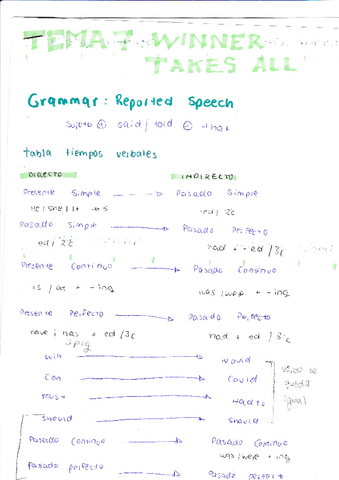 TEMA 7: WINNER
TAKES ALL
Grammar: Reported Speech
Sujeto + said / told + that
tabla tiempos verbales
DIRECTO INDIRECTO
Presente Simple → Pasado Simple
He / She / It → s -ed / 2c
Pasado Simple → Pasado Perfecto
ed / 2c had + -ed / 3c
Presente Continuo → Pasado Continuo
is / are + -ing was / were + -ing
Presente Perfecto → Pasado Perfecto
have / has + ed / 3c had + ed / 3c
will → would
can → could
must → had to
should → should
verbo se
queda
igual
Pasado Continuo → Pasado Continuo
was / were + ing
Pasado perfecto → Pasado perfecto